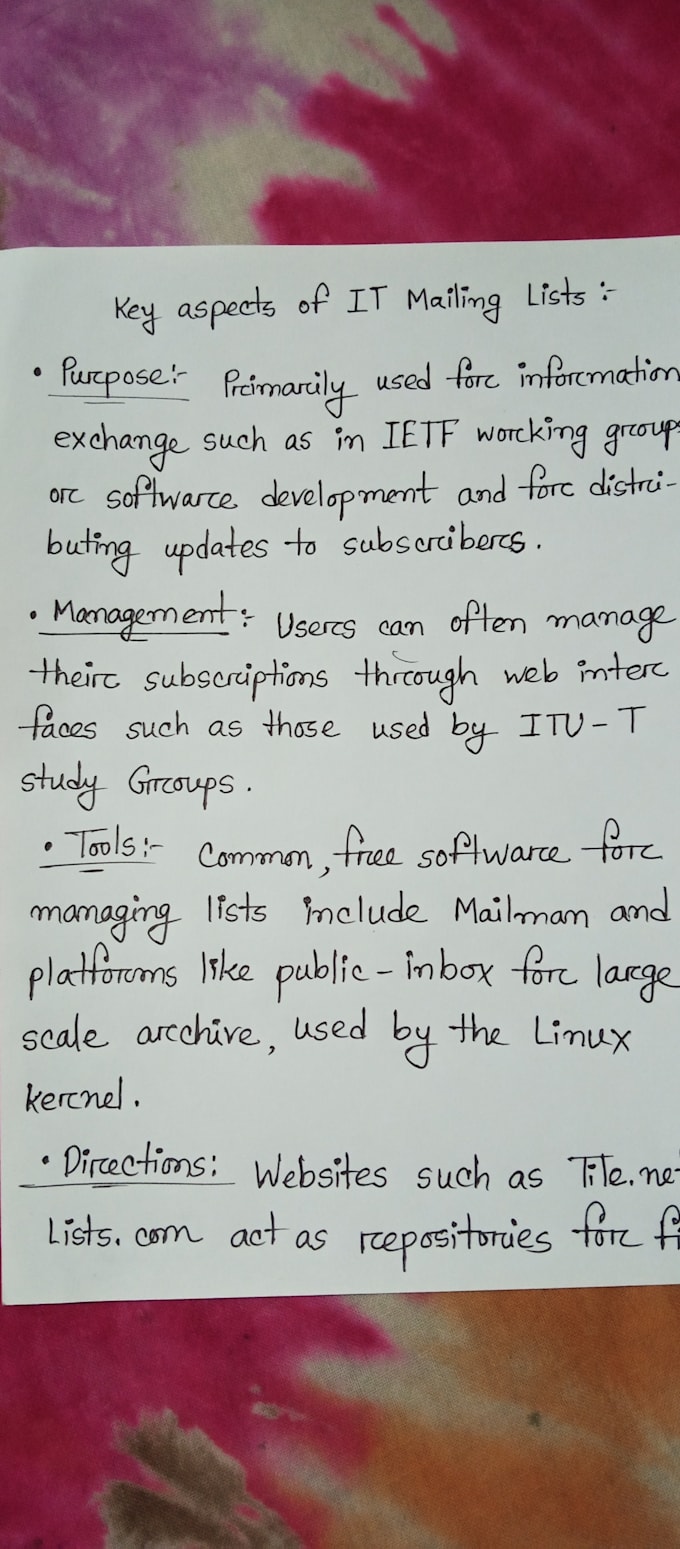 Key aspects of IT Mailing Lists :-
• Purpose:- Primarily used for information
exchange such as in IETF working groups
or software development and for distri-
buting updates to subscribers.
• Management:- Users can often manage
their subscriptions through web inter
faces such as those used by ITU-T
study Groups.
• Tools:- Common, free software for
managing lists include Mailman and
platforms like public-inbox for large
scale archive, used by the Linux
kernel.
• Directions: Websites such as Tile.ne
Lists.com act as repositories for